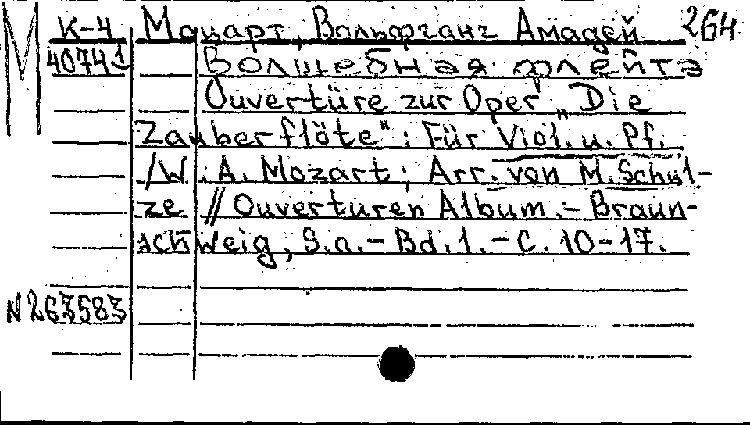 М К-4 Моцарт, Вольфганг Амадей 264
40741 Волшебная флейта
Ouvertüre zur Oper „Die
Zauberflöte": Für Viol. u. Pf.
/W. A. Mozart; Arr. von M. Schul-
ze // Ouverturen Album. - Braun-
schweig, S.a. - Bd. 1. - С. 10-17.
N 263583